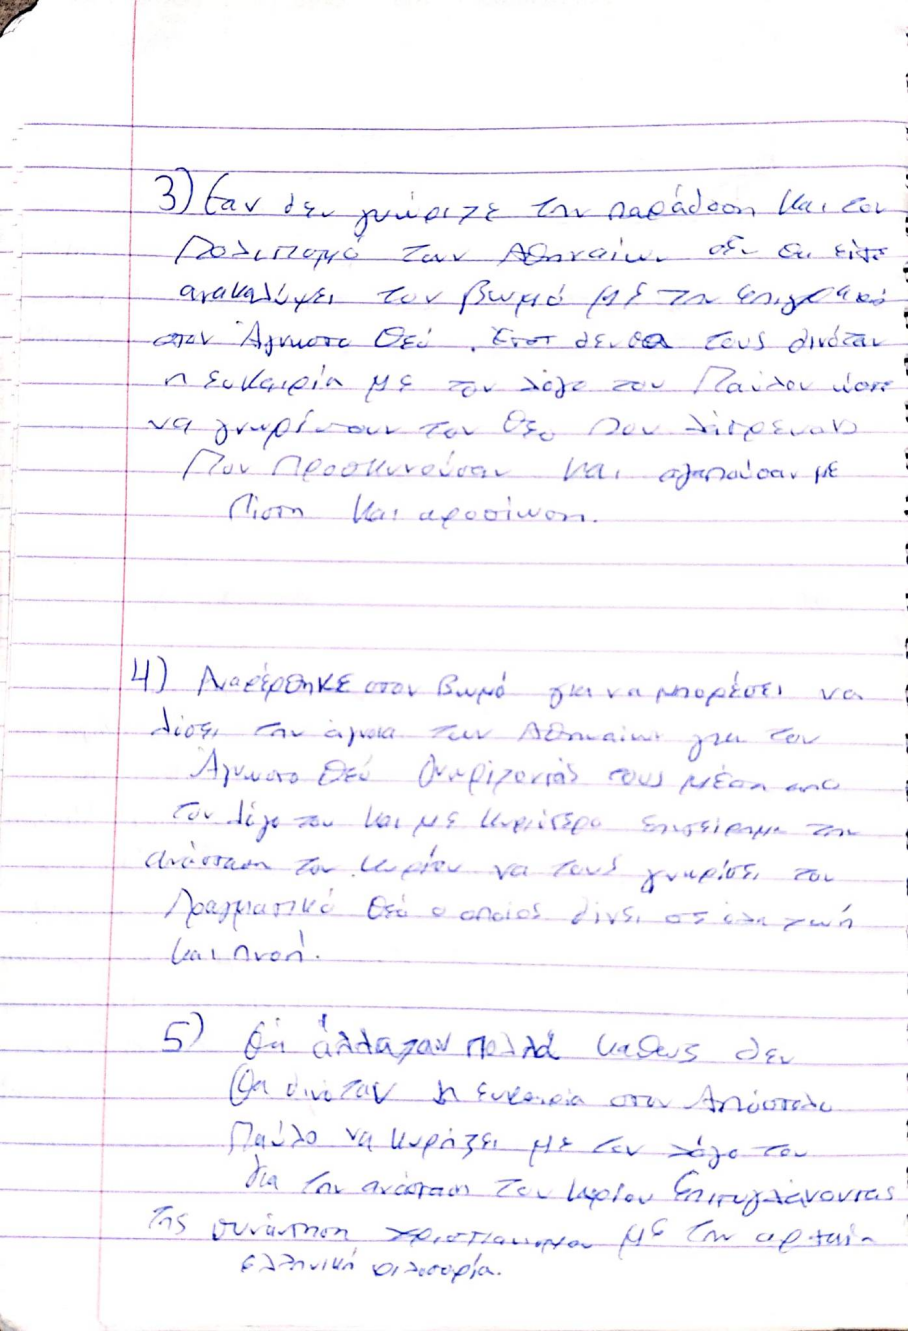 3) Εαν δεν γνώριζε την παράδοση και τον
Πολιτισμό των Αθηναίων δεν θα είχε
ανακαλύψει τον βωμό με την επιγραφή
στον Άγνωστο Θεό. Έτσι δεν θα τους δινόταν
η ευκαιρία με τον λόγο του Παύλου ώστε
να γνωρίσουν τον Θεο που λάτρευαν
Που προσκυνούσαν και αγαπούσαν με
Πίστη και αφοσίωση.
4) Αναφέρθηκε στον Βωμό για να μπορέσει να
λύσει την άγνοια των Αθηναίων για τον
Άγνωστο Θεό Γνωρίζοντάς τους μέσα απο
τον λόγο του και με κυριότερο επιχείρημα την
ανάσταση του Κυρίου να τους γνωρίσει τον
Πραγματικό Θεό ο οποίος δίνει σε όλα ζωή
και πνοή.
5) Θα άλλαζαν πολλά καθως δεν
Θα δινόταν η ευκαιρία στον Απόστολο
Παύλο να κυρήξει με τον λόγο του
Για την ανάσταση του Κυρίου
της συνάντηση χριστιανισμου με την αρχαία
ελληνική φιλοσοφία.